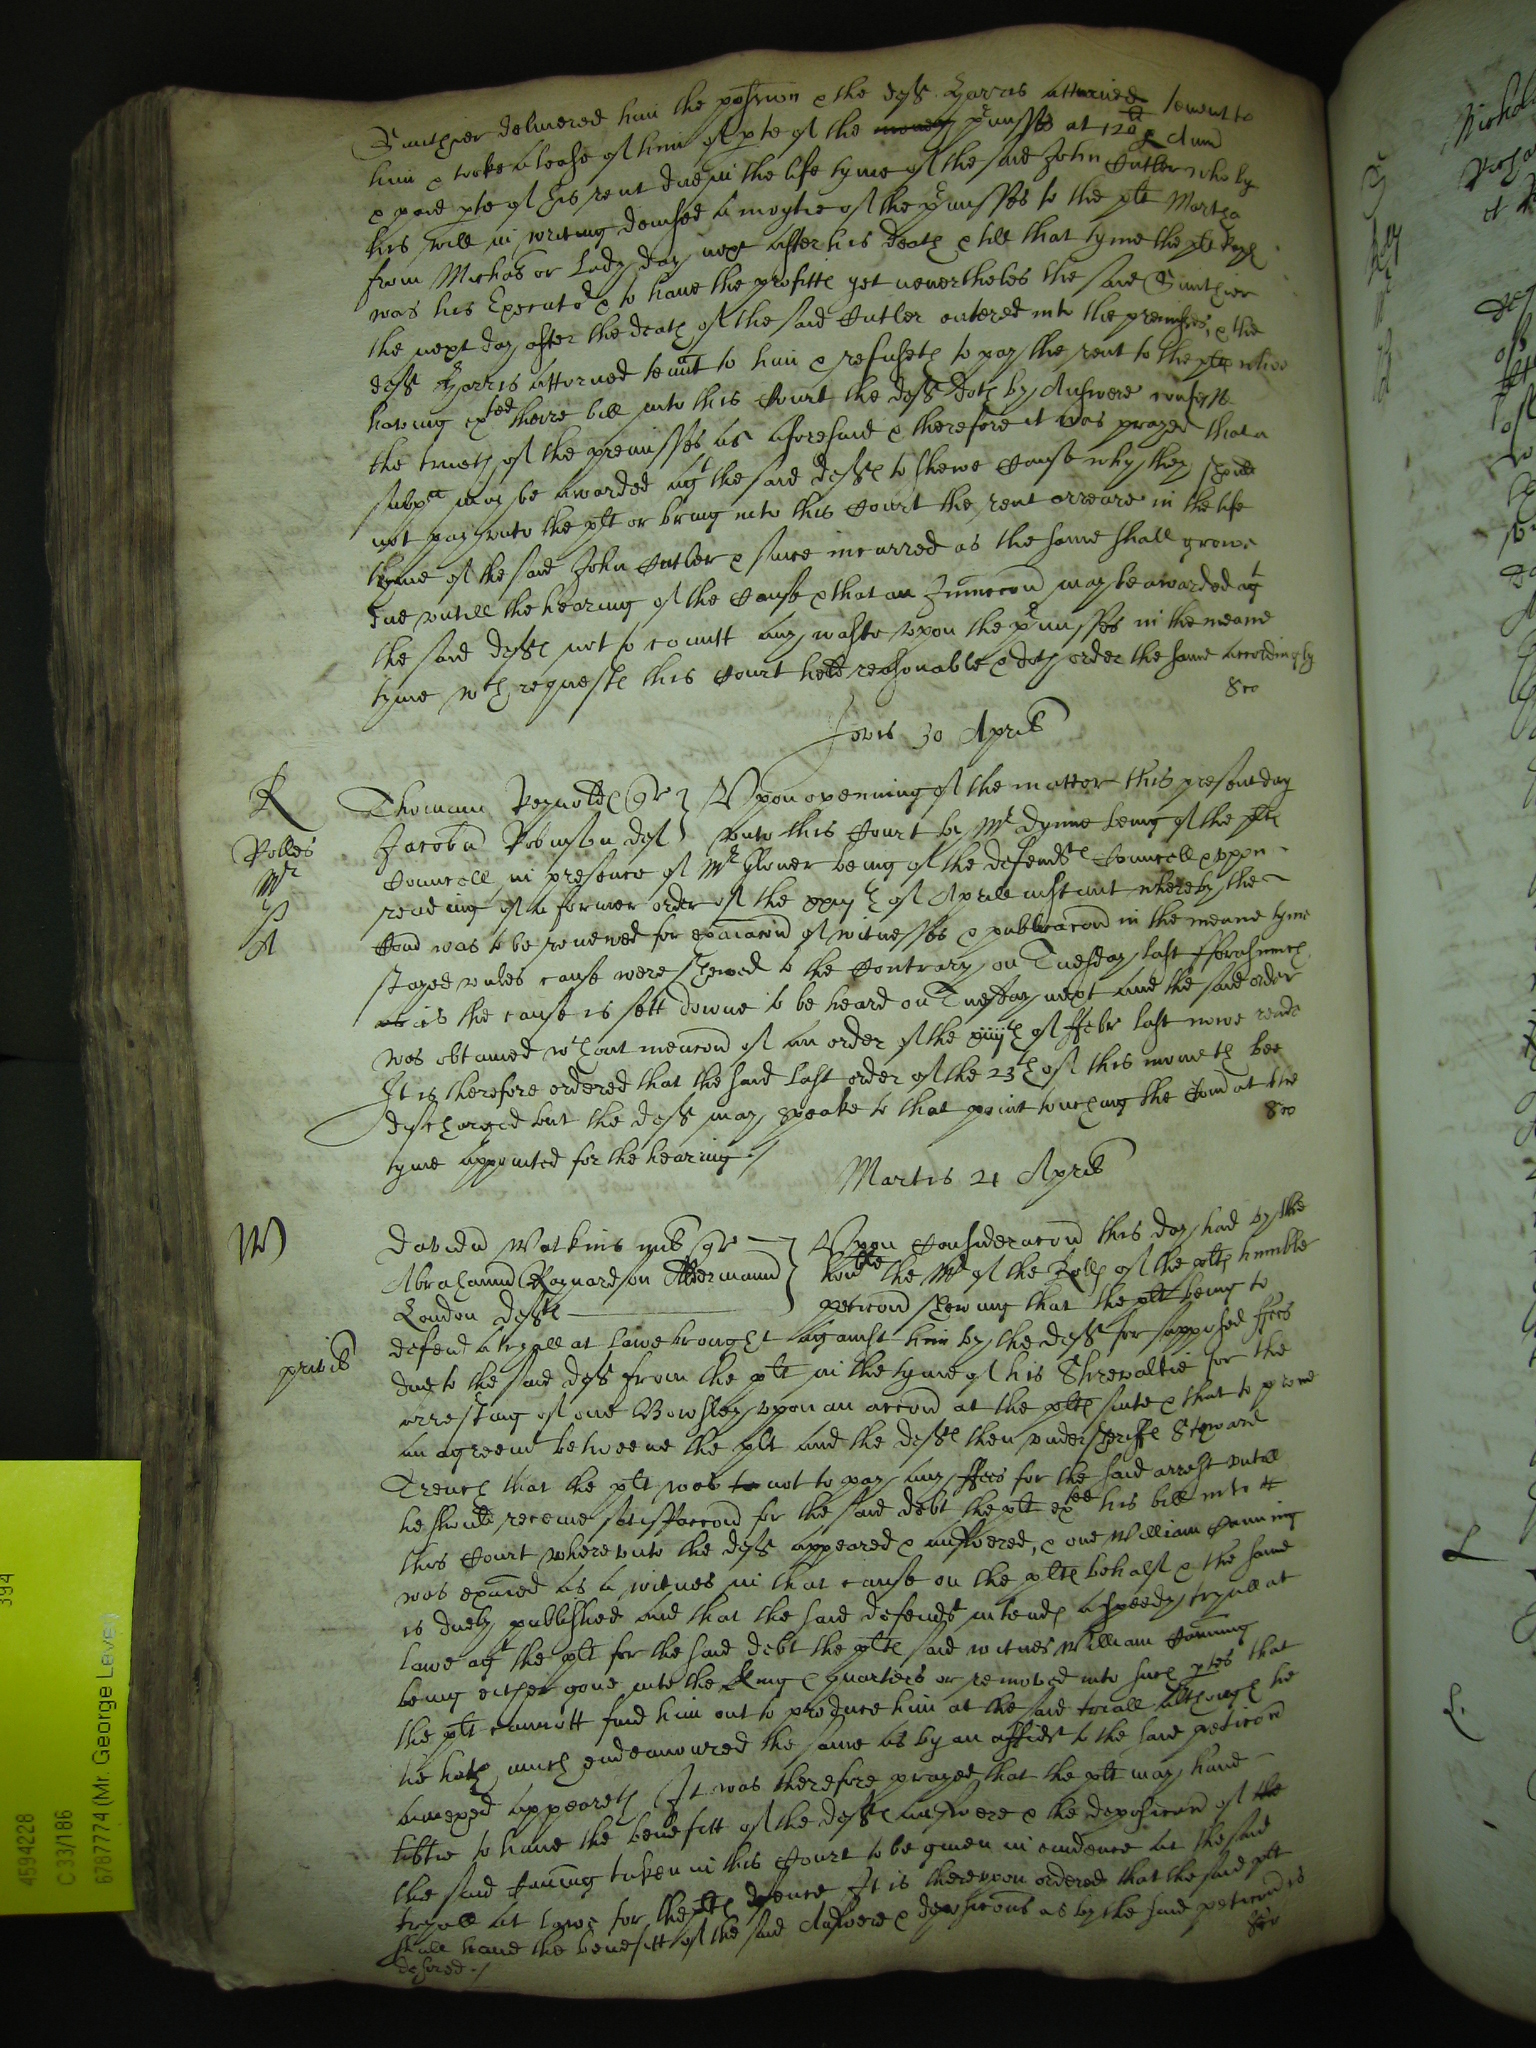 Gunthier delivered him the possession & the deft Harris attorned tennt to
him & tooke a lease of him of pte of the money prmisses at 120li p Ann
& paid pte of his rent due in the life tyme of the said John Cutler who by
his will in writing devised a moytie of the prmisses to the plt Martha
from Michas or Lady day next after his death & till that tyme the plt
was his Executor & to have the profitts yet neverthelesse the said Gunthier
the next day after the death of the said Cutler entered into the premisses, & the
deft Harris attorned tennt to him & refuseth to pay the rent to the plts who
having exted theire bill into this Court the deft doth by Answere confesse
the trueth of the premisses as aforesaid & therefore it was prayed that a
subpa may be awarded agt the said defts to shewe Cause why they should
not pay unto the plt or bring into this Court the rent arreare in the life
tyme of the said John Cutler & since incurred as the same shall growe
due untill the hearing of the Cause & that an Iniunccon may be awarded agt
the said defts not to comitt any waste upon the prmisses in the meane
tyme wch requests this Court held reasonable & doth order the same accordingly
Jovis 30 Aprilis
R Thomam Reynolds qr Upon opening of the matter this present day
Rolles Jacobu Robinson def unto this Court by Mr Dynne being of the plts
Mr Councell in presence of Mr Glover being of the defendts Councell & uppon
reading of a former order of the xxiijth of Aprill instant whereby the
Comd was to be renewed for exaiacon of witnesses & publicacon in the meane tyme
stayed unles cause were shewed to the Contrary on Tuesday last fforasmuch
as the cause is sett downe to be heard on Tuesday next and the said order
was obtained wthout mencon of an order of the xiiijth of ffebr last nowe reade
It is therefore ordered that the said last order of the 23th of this moneth bee
discharged but the deft may speake to that point touching the Comd at the
tyme appointed for the hearing ./
Martis 21 Aprilis
W Davidu Watkins mil qr Upon Consideracon this day had by the
Abrahamu Raynardson Aldermann honble the Mr of the Rolls of the plts humble
London deft peticon shewing that the plt being to
defend a tryall at lawe brought against him by the deft for supposed ffees
privis due to the said deft from the plt in the tyme of his Shrevaltie for the
arresting of one Bowsley upon an accon at the plts suite & that to prove
an agreemt betweene the plt and the defts then undersheriffe Steward
Trench that the plt was to not to pay any ffees for the said arrest untill
he should receive satisffaccon for the said debt the plt exed his bill into
this Court whereunto the deft appeared & answered, & one William Canning
was exaied as a witnes in that cause on the plts behalf & the same
is duely published and that the said defendt intends a speedy tryall at
lawe agt the plt for the said debt the plts said witnes William Canning
being either gone into the Kings quarters or removed into such ptes that
the plt cannott find him out to produce him at the said triall although he
he hath much endeavoured the same as by an affidt to the said peticon
annexed appeareth It was therefore prayed that the plt may have
libtie to have the benefitt of the defts answere & the deposicon of the
the said Canning taken in this Court to be given in evidence at the said
tryall at lawe for the plts defence It is thereupon ordered that the said plt
shall have the benefitt of the said Answere & deposicons as by the said peticon is
desired ./
394
4594228
C 33/186
6787774 (Mr. George Levey)